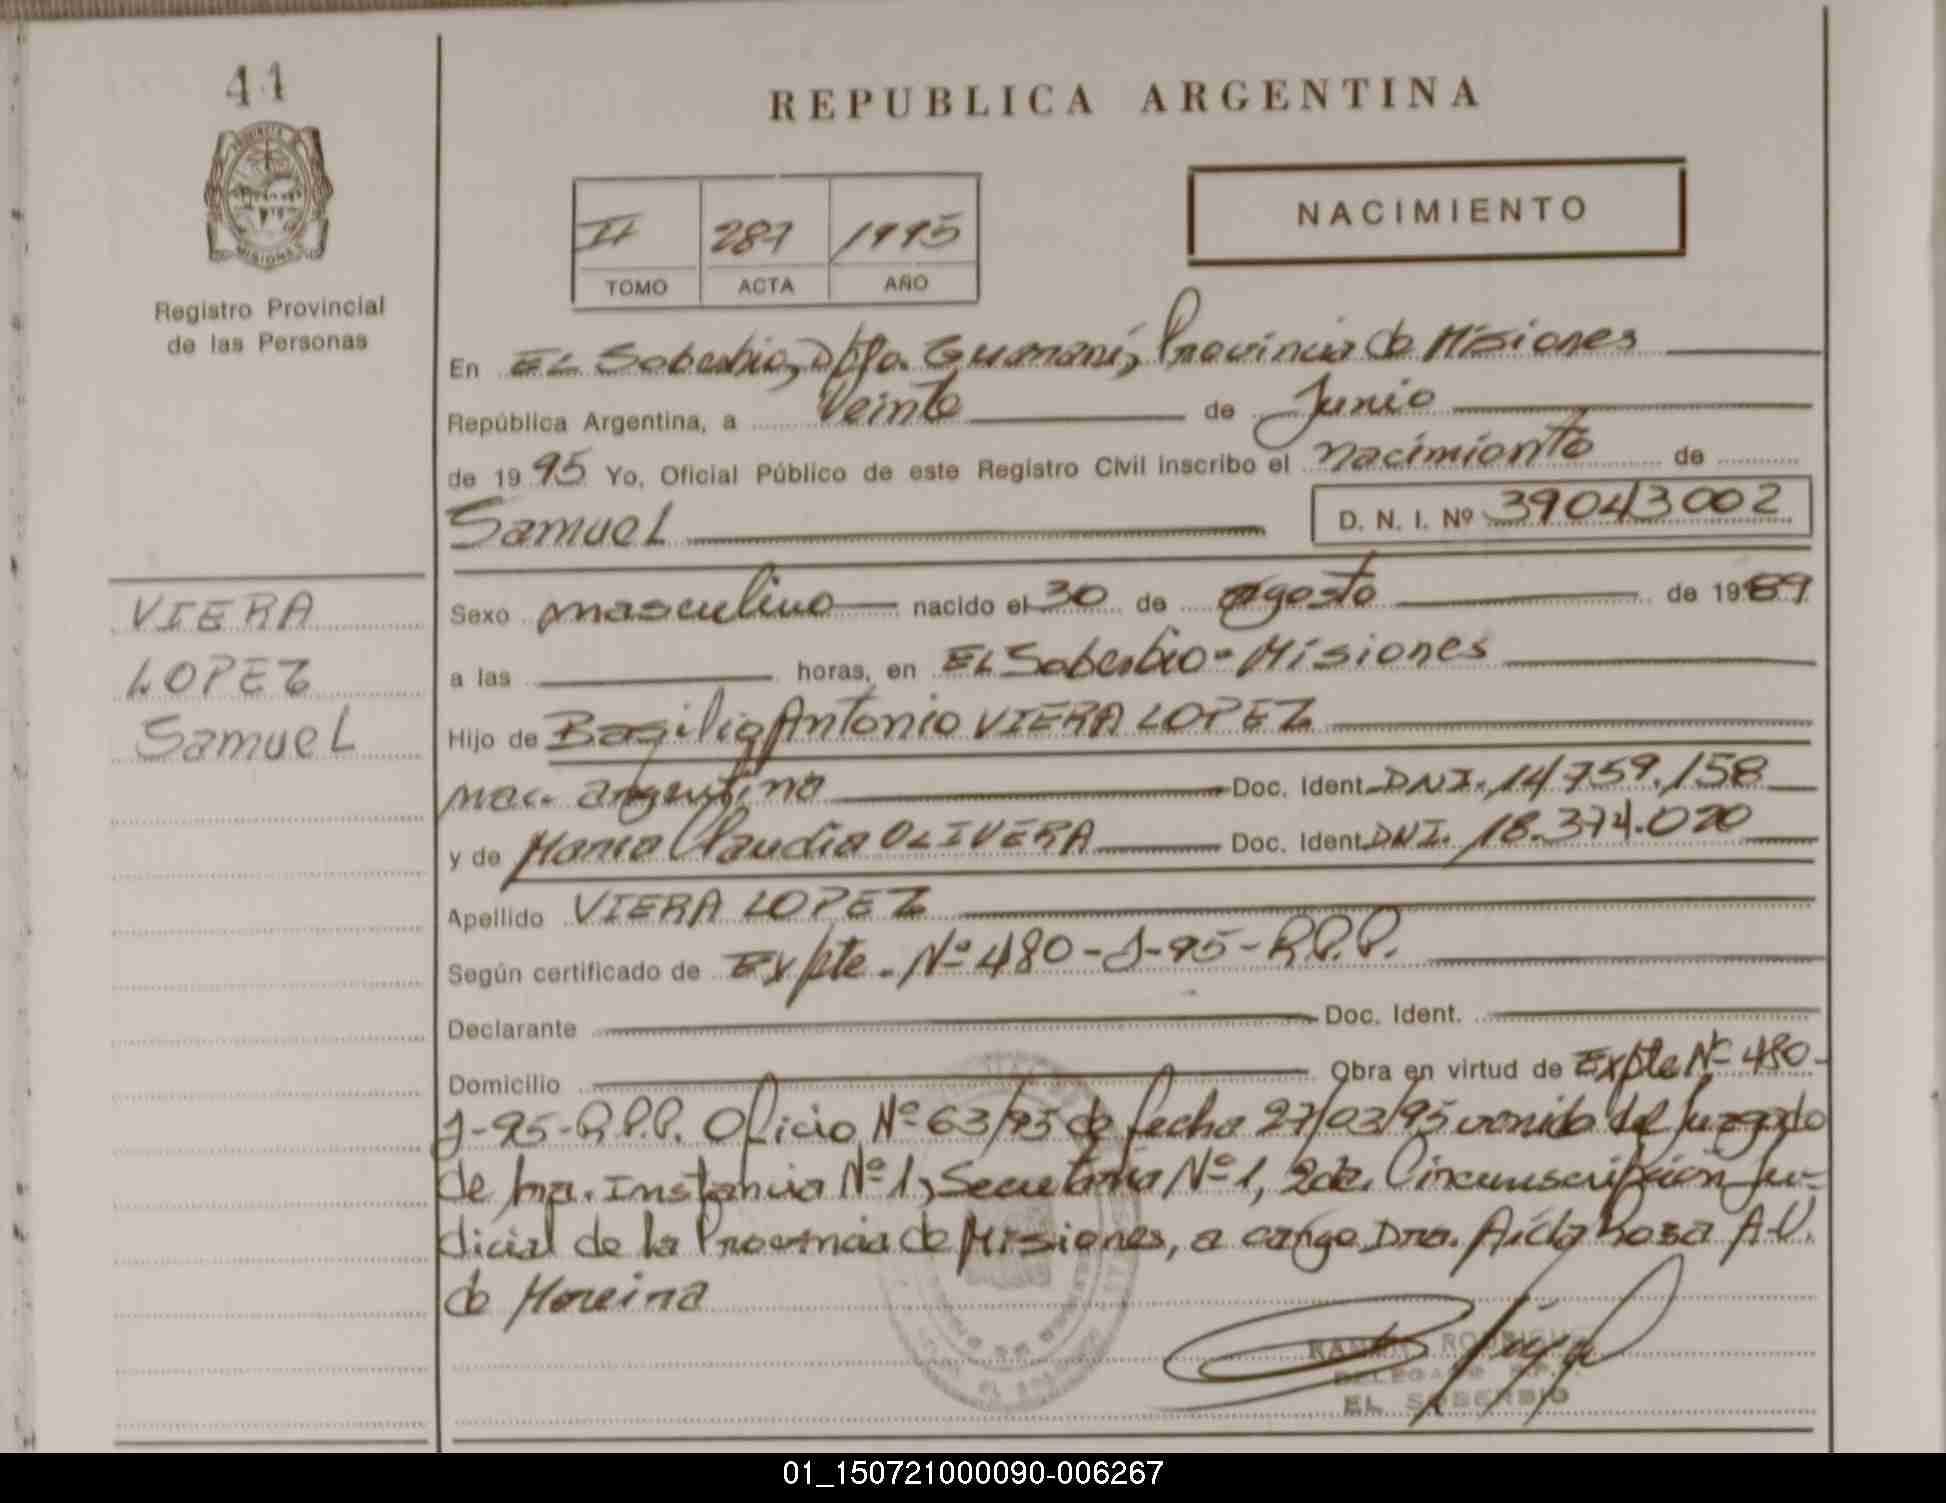 41
REPUBLICA ARGENTINA
PROVINCIA
MISIONES
Registro Provincial
de las Personas
II 287 1995
TOMO ACTA AÑO
NACIMIENTO
En EL Soberbio, Dpto. Guaraní, Provincia de Misiones
República Argentina, a Veinte de Junio
de 1995 Yo, Oficial Público de este Registro Civil inscribo el nacimiento de
Samuel D. N. I. Nº 39043002
VIERA
LOPEZ
Samuel
Sexo masculino nacido el 30 de agosto de 1989
a las horas, en EL Soberbio - Misiones
Hijo de Basilio Antonio VIERA LOPEZ
nac. argentina Doc. Ident. DNI. 14.759.158
y de Maria Claudia OLIVERA Doc. Ident. DNI. 18.374.020
Apellido VIERA LOPEZ
Según certificado de Expte. Nº 480-J-95-R.P.P.
Declarante Doc. Ident.
Domicilio Obra en virtud de Expte Nº 480-
J-95-R.P.P. Oficio Nº 63/95 de fecha 27/03/95 venido del Juzgado
de Ira. Instancia Nº 1, Secretaria Nº 1, 2da. Circunscripción Ju-
dicial de la Provincia de Misiones, a cargo Dra. Aida Rosa A.V.
de Moreira
RAMON RODRIGUEZ
DELEGADO R.P.P.
EL SOBERBIO
01_150721000090-006267